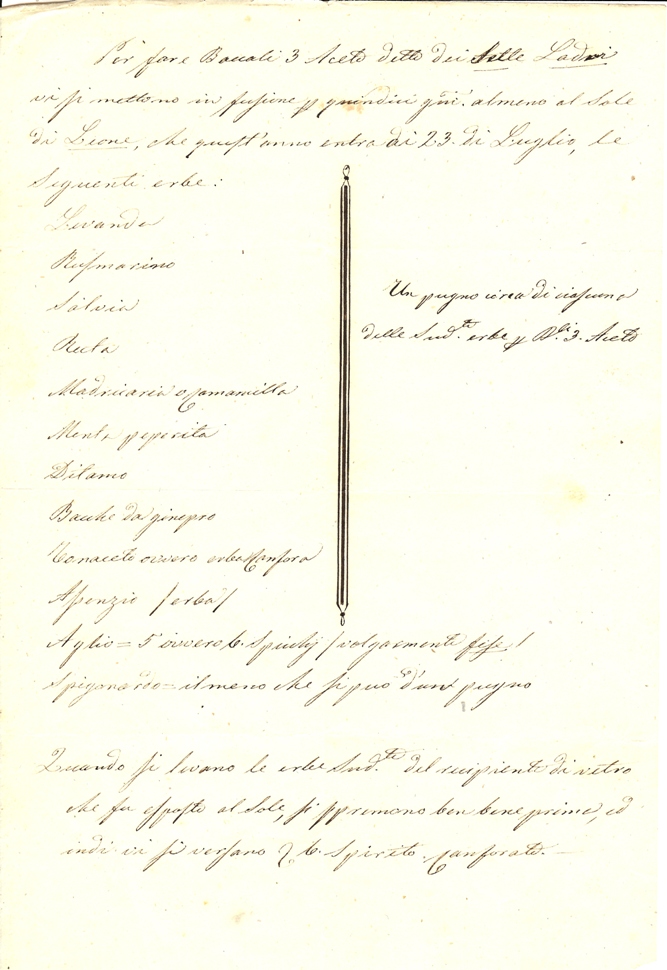 Per fare Boccali 3 Aceto detto dei Sette Ladri
vi si mettono in fusione p quindici gni. almeno al Sole
di Leone, che quest'anno entra ai 23. di Luglio, le
seguenti erbe:
Levanda
Rusmarino
Salvia
Ruta
Madricaria o Camamilla
Menta peperita
Ditamo
Bacche da ginepro
Tanaceto ovvero erba Canfora
Assenzio /erba/
Un pugno circa di ciascuna
delle Sud.te erbe p B.li 3. Aceto
Aglio = 5 ovvero 6. Spichj /volgarmente fese/
Spigonardo = il meno che si può d'un pugno
Quando si levano le erbe Sud.te del recipiente di vetro
che fu esposto al Sole, si spremono ben bene prima, ed
indi vi si versano 6. Spirito Canforato. —